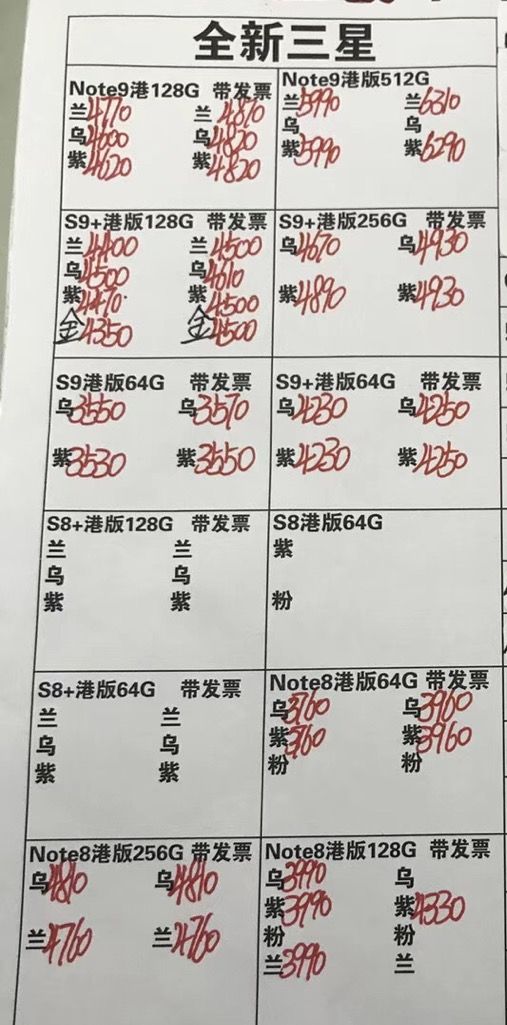 全新三星
Note9港128G 带发票
兰4770 兰4870
乌4600 乌4820
紫4620 紫4820
Note9港版512G
兰5990 兰6310
乌 乌
紫5990 紫6290
S9+港版128G 带发票
兰4400 兰4500
乌4500 乌4610
紫4470 紫4500
金4350 金4500
S9+港版256G 带发票
乌4670 乌4930
紫4890 紫4930
S9港版64G 带发票
乌3550 乌3570
紫3530 紫3550
S9+港版64G 带发票
乌4230 乌4250
紫4230 紫4250
S8+港版128G 带发票
兰 兰
乌 乌
紫 紫
S8港版64G
紫
粉
S8+港版64G 带发票
兰 兰
乌 乌
紫 紫
Note8港版64G 带发票
乌3760 乌3960
紫3760 紫3960
粉 粉
Note8港版256G 带发票
乌4810 乌4810
兰4760 兰4760
Note8港版128G 带发票
乌3990 乌
紫3990 紫4330
粉 粉
兰3990 兰